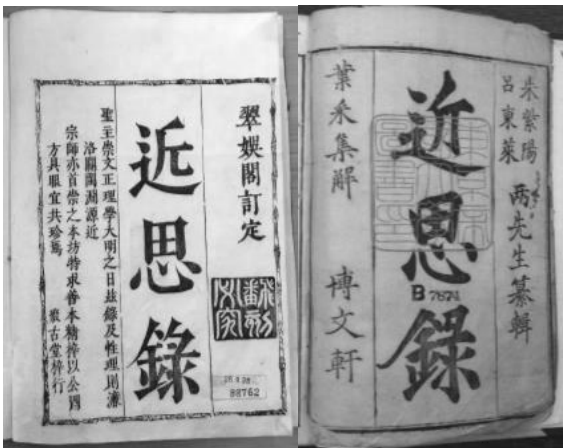 翠娛閣訂定
翻刻必究
近思錄
聖主崇文正理學大明之日茲錄及性理則濂
洛關閩淵源近
宗師亦首崇之本坊特求善本精梓以公四
方具眼宜共珍焉
古堂梓行
88762
朱紫陽
呂東萊
兩先生纂輯
近思錄
B 7874
葉采集解 博文軒